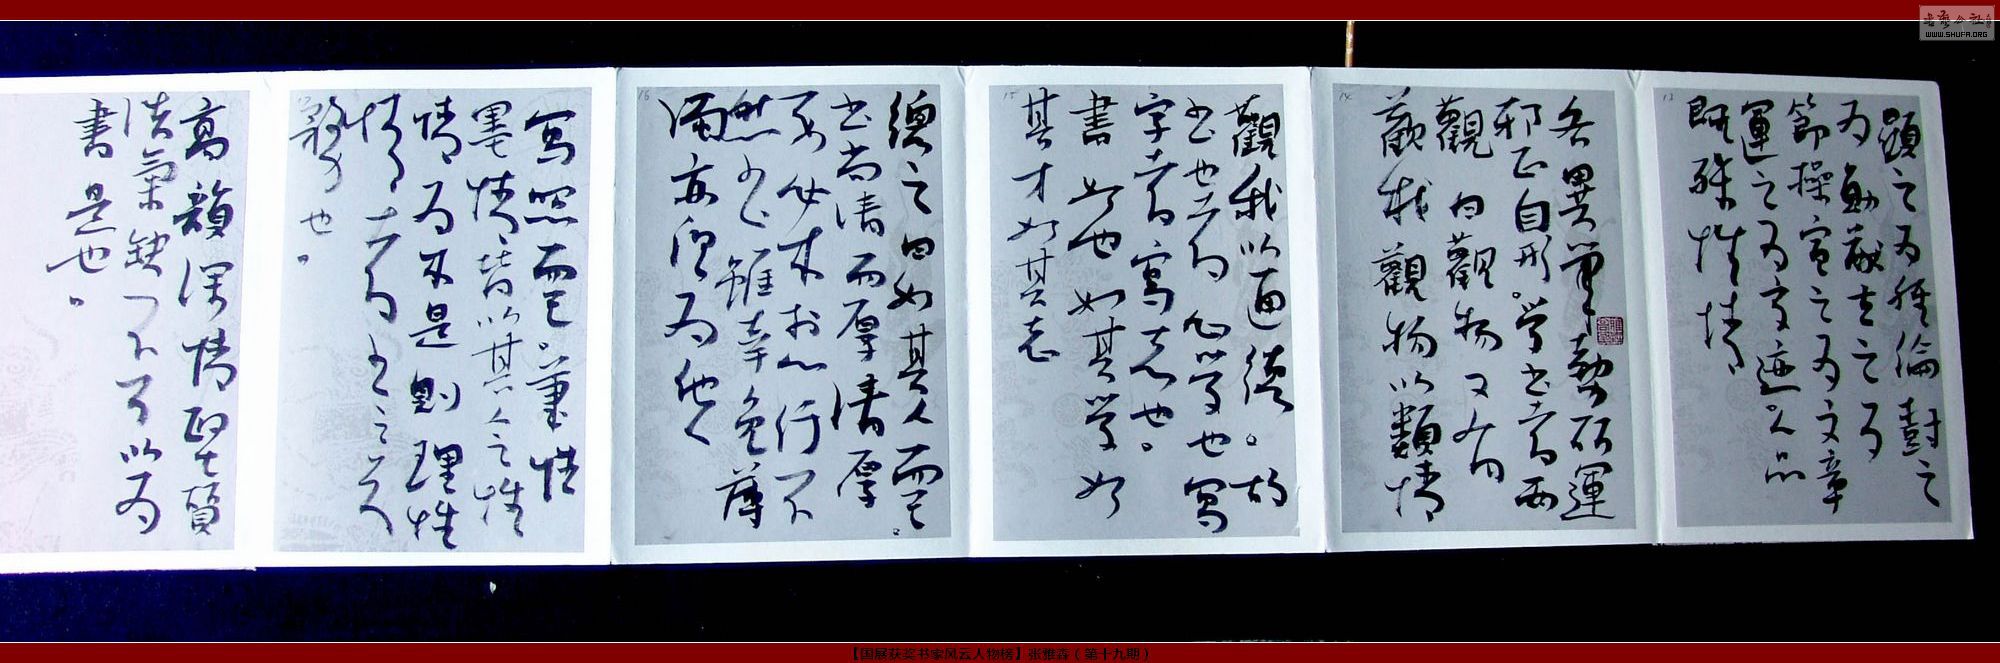 顯之為經綸樹之
為勳猷立之為
節操宣之為文章
運之為字迹人品
既殊性情
各異筆勢所運
邪正自形。學書者两
觀曰觀物又有
觀我觀物以類情
觀我以通德。故
書也者心學也寫
字者寫志也。
書如也如其學如
其才如其志
總之曰如其人而已。
書尚清而厚清厚
要必本於心行不
然書雖幸免薄
濁亦但為他人
寫照而已。筆性
墨情皆以其人之性
情為本是則理性
情者書之首
務也。
高韻深情堅質
浩氣缺一不可以為
書是也。
13
14
15
16
书艺公社
WWW.SHUFA.ORG
【国展获奖书家风云人物榜】张雅森（第十九期）